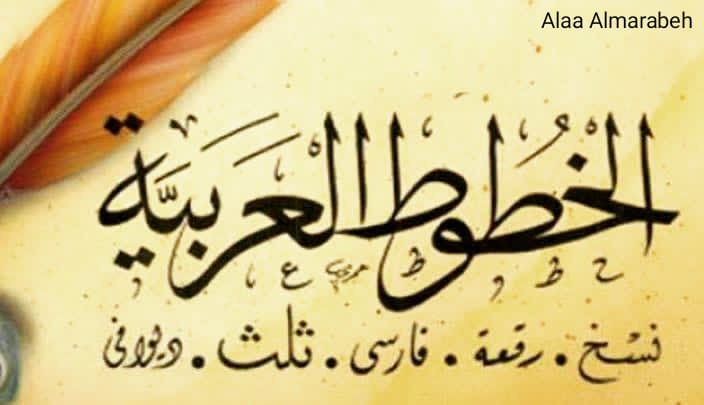 Alaa Almarabeh
الخُطُوط العَرَبيَّة
نسْخ . رقعة . فارسى . ثلث . ديوانى